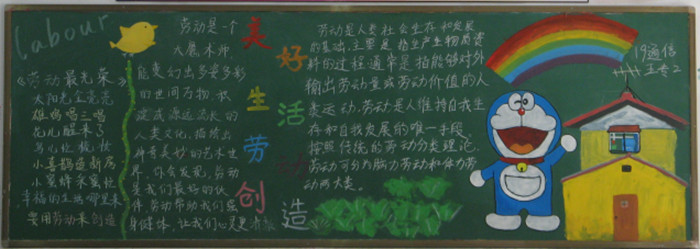 Labour
《劳动最光荣》
太阳光金亮亮
雄鸡唱三唱
花儿醒来了
鸟儿忙梳妆
小喜鹊造新房
小蜜蜂采蜜忙
幸福的生活哪里来
要用劳动来创造
劳动是一个
大魔术师
能变幻出多姿多彩
的世间万物,积
淀成源远流长的
人类文化,描绘出
神奇美妙的艺术世
界,你会发现,劳动
是我们最好的伙
伴,劳动带给我们强
身健体,让我们心灵更
美好生活劳动创造
劳动是人类社会生存和发展
的基础,主要是指生产生物质资
料的过程,通常是指能够对外
输出劳动量或劳动价值的人
类运动,劳动是人维持自我生
存和自我发展的唯一手段。
按照传统的劳动分类理论,
劳动可分为脑力劳动和体力劳
动两大类。
19通信
王专2